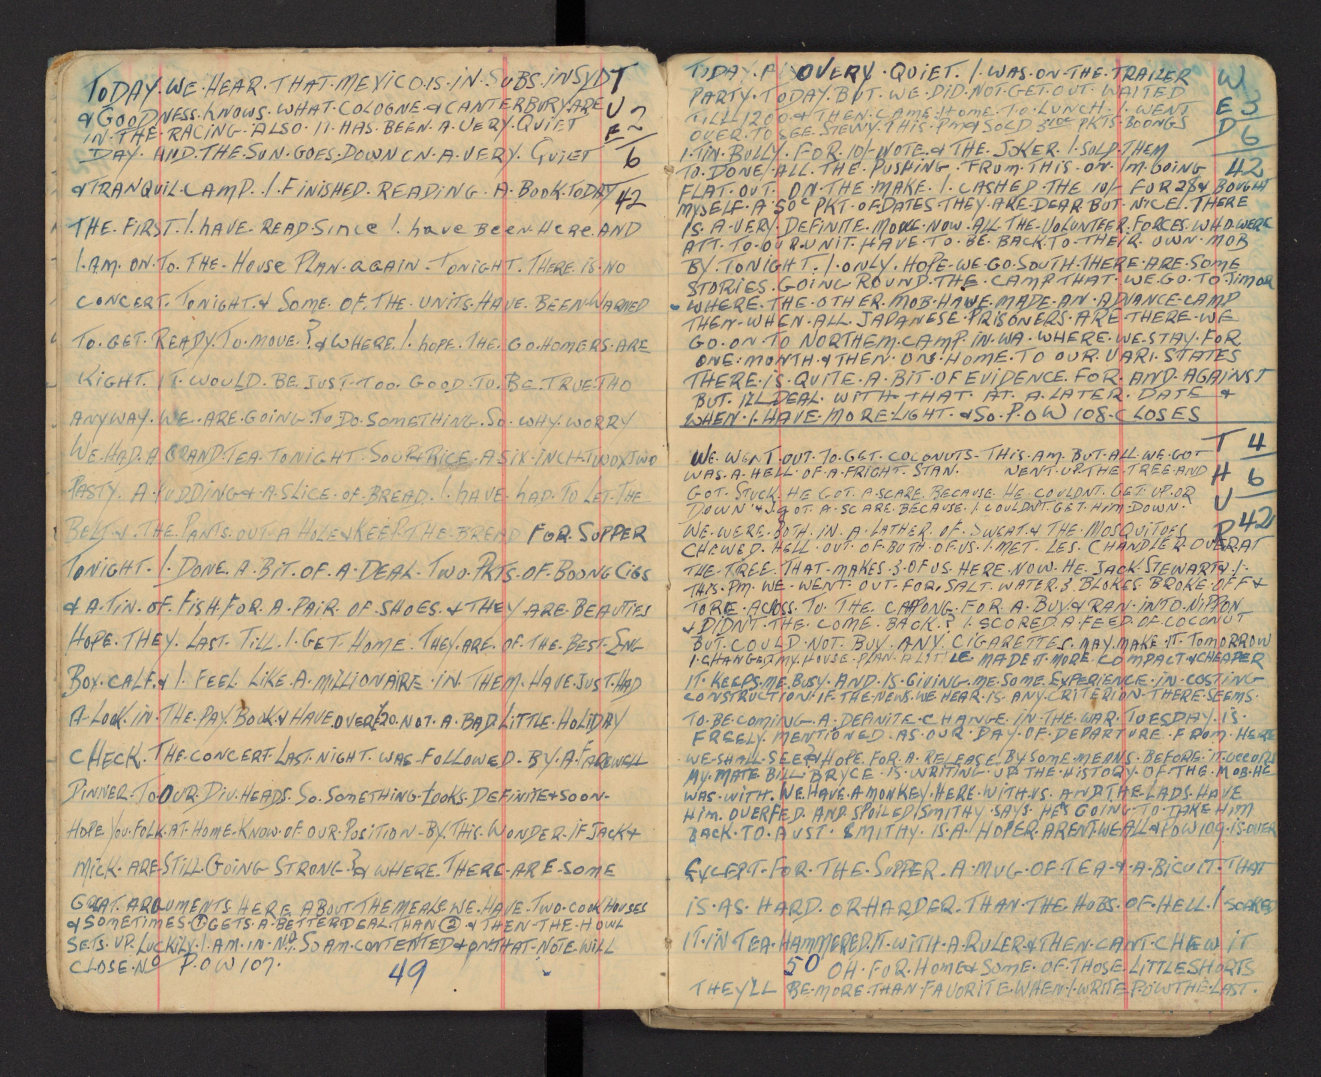 TODAY. WE. HEAR. THAT. MEXICO. IS. IN. SUBS. IN SYD T
& GOODNESS. KNOWS. WHAT. COLOGNE. & CANTERBURY. ARE U 2
IN. THE. RACING. ALSO. IT. HAS. BEEN. A. VERY. QUIET E
DAY. AND. THE SUN. GOES. DOWN ON. A. VERY. QUIET 6
& TRANQUIL CAMP. I. FINISHED. READING. A. BOOK TODAY 42
THE. FIRST. I. have. READ. Since. I. have Been. Here. AND
I. AM. ON. TO. THE. House PLAN. again. TONIGHT. THERE. IS. NO
CONCERT. TONIGHT. & SOME. OF. THE. UNITS. HAVE. BEEN. WARNED
TO. GET. READY. TO. MOVE. ? & WHERE. I. hope. THE. GO. HOMERS. ARE
RIGHT. IT. WOULD. BE. JUST. TOO. GOOD. TO. BE. TRUE. THO
ANYWAY. WE. ARE. GOING. TO. DO. SOMETHING. SO. WHY. WORRY
WE. HAD. A GRAND TEA. TONIGHT. SOUP & RICE. A SIX. INCH. TWO X TWO
PASTY. A PUDDING & A. SLICE. OF. BREAD. I. have. had. TO. LET. THE
BELT. & THE. PANTS. OUT. A HOLE & KEEP. THE. BREAD FOR. SUPPER
TONIGHT. I. DONE. A. BIT. OF. A. DEAL. TWO. PKTS. OF. BOONG CIGS
& A. TIN. OF. FISH. FOR. A. PAIR. OF. SHOES. & THEY. ARE. BEAUTIES
HOPE. THEY. LAST. TILL. I. GET. HOME. THEY. ARE. OF. THE. BEST. ENG
BOX. CALF. & I. FEEL. LIKE. A. MILLIONAIRE. IN. THEM. HAVE. JUST. HAD
A. LOOK. IN. THE. PAY. BOOK. & HAVE OVER £20. NOT. A. BAD LITTLE. HOLIDAY
CHECK. THE. CONCERT. LAST. NIGHT. WAS. FOLLOWED. BY. A. FAREWELL
DINNER. TO. OUR. DIV. HEADS. SO. SOMETHING. LOOKS. DEFINITE & SOON.
HOPE YOU FOLK. AT. HOME. KNOW. OF OUR. POSITION. BY. THIS. WONDER. IF JACK &
MICK. ARE STILL GOING STRONG ? & WHERE. THERE. ARE. SOME
GREAT. ARGUMENTS HERE. ABOUT. THE MEALS. WE. HAVE. TWO. COOK HOUSES
& SOMETIMES ① GETS. A. BETTER DEAL. THAN ② & THEN. THE. HOWL
SETS. UP. LUCKILY. I. AM. IN. No. SO AM. CONTENTED & ON THAT. NOTE. WILL
CLOSE. No P.O.W 107.
49
TODAY. ALSO VERY. QUIET. I. WAS. ON. THE. TRAILER W
PARTY. TODAY. BUT. WE. DID. NOT. GET. OUT. WAITED E 3
TILL 1200 & THEN. CAME. HOME. TO. LUNCH. I. WENT D 6
OVER. TO. SEE. STEWY. THIS. PM & SOLD PKTS BOONGS
& 1. TIN. BULLY. FOR. 10/- NOTE. & THE. JOKER. I. SOLD. THEM 42
TO. DONE. ALL. THE. PUSHING. FROM. THIS. ON. IM. GOING
FLAT. OUT. ON. THE. MAKE. I. CASHED. THE. 10/- FOR & BOUGHT
MYSELF. A. 50c PKT. OF DATES. THEY. ARE. DEAR. BUT. NICE. THERE
IS. A. VERY. DEFINITE. MOVE. NOW. ALL. THE. VOLUNTEER. FORCES. WHO WERE
ATT. TO. OUR. UNIT. HAVE. TO. BE. BACK. TO. THEIR. OWN. MOB
BY. TONIGHT. I. ONLY. HOPE. WE. GO. SOUTH. THERE. ARE. SOME
STORIES. GOING. ROUND. THE. CAMP. THAT. WE. GO. TO. TIMOR
WHERE. THE. OTHER. MOB. HAVE. MADE. AN. ADVANCE. CAMP
THEN. WHEN. ALL. JAPANESE. PRISONERS. ARE. THERE. WE
GO. ON. TO. NORTHEM. CAMP. IN. WA. WHERE. WE. STAY. FOR
ONE. MONTH. & THEN. ON. HOME. TO. OUR. VARI. STATES
THERE. IS. QUITE. A. BIT. OF EVIDENCE. FOR. AND. AGAINST
BUT. ILL. DEAL. WITH. THAT. AT. A. LATER. DATE &
WHEN. I. HAVE. MORE. LIGHT. & SO. P.O.W 108. CLOSES
WE. WENT. OUT. TO. GET. COCONUTS. THIS. AM. BUT. ALL. WE. GOT T 4
WAS. A. HELL. OF A. FRIGHT. STAN. WENT. UP. THE. TREE. AND H 6
GOT. STUCK. HE GOT. A SCARE. BECAUSE. HE. COULDNT. GET. UP. OR U
DOWN. & I GOT. A. SCARE. BECAUSE. I. COULDNT. GET. HIM. DOWN. R 42
WE. WERE. BOTH. IN. A. LATHER. OF. SWEAT. & THE. MOSQUITOES
CHEWED. HELL. OUT. OF. BOTH. OF. US. I. MET. LES. CHANDLER. OVER AT
THE. TREE. THAT. MAKES 3 OF US. HERE. NOW. HE. JACK. STEWART & I.
THIS. PM. WE. WENT. OUT. FOR. SALT. WATER. 3 BLOKES. BROKE. OFF &
TORE. ACROSS. TO. THE. CAMPONG. FOR. A. BUY & RAN. INTO. NIPPON
& DIDNT. THE. COME. BACK. ? I. SCORED. A. FEED. OF. COCONUT
BUT. COULD. NOT. BUY. ANY. CIGARETTES. MAY. MAKE. IT. TOMORROW
I. CHANGED. MY. HOUSE. PLAN. A LITTLE MADE IT. MORE. COMPACT & CHEAPER
IT. KEEPS. ME. BUSY. AND. IS. GIVING. ME. SOME. EXPERIENCE. IN. COSTING
CONSTRUCTION. IF THE. NEWS. WE HEAR. IS. ANY. CRITERION. THERE. SEEMS.
TO. BE. COMING. A. DEFINITE. CHANGE. IN. THE. WAR. TUESDAY. IS.
FREELY. MENTIONED. AS. OUR. DAY. OF. DEPARTURE. FROM. HERE
WE. SHALL. SEE & HOPE. FOR. A. RELEASE. BY SOME. MEANS. BEFORE. IT. OCCURS
MY. MATE. BILL. BRYCE. IS. WRITING. UP. THE. HISTORY. OF. THE. MOB. HE
WAS. WITH. WE. HAVE. A MONKEY. HERE. WITH. US. AND. THE. LADS. HAVE
HIM. OVERFED. AND. SPOILED. SMITHY. SAYS. HE'S GOING. TO. TAKE. HIM
BACK. TO. AUST. SMITHY. IS. A. HOPER. ARENT. WE ALL & P.O.W 109. IS. OVER
EXCEPT. FOR. THE. SUPPER. A. MUG. OF. TEA. & A. BICUIT. THAT
IS. AS. HARD. OR HARDER. THAN. THE HOBS. OF. HELL. I SOAKED
IT. IN TEA. HAMMERED. IT. WITH. A. RULER & THEN. CAN'T. CHEW IT
50 OH. FOR. HOME & SOME. OF. THOSE. LITTLE SHORTS
THEY'LL BE. MORE. THAN FAVORITE. WHEN. I. WRITE POW THE LAST.